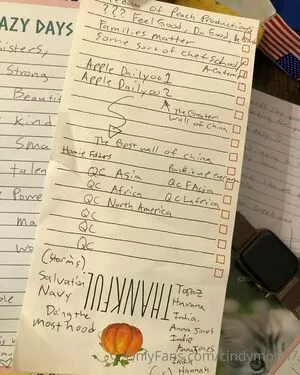 AZY DAYS
sisters,
Strong
Beauti
Kind
Sma
talen
Powe
ma
wo
edom of Peach Productions
??? Feel Good, Do Good,
Families Matter
Some sort of chef school
Academ
Apple Daily001
Apple Daily002
The Greater
Wall of China
The Best wall of china
Homie Fakers
QC Asia
QC E Asia
QC Africa
QC Lafrica
QC North America
QC
QC
QC
(Storms)
Salvation
Navy
Doing the
most hood
THANKFUL!
Topaz
Havana
India
Anna Jones
Indie
Hannah
onlyFans.com/cindymoo